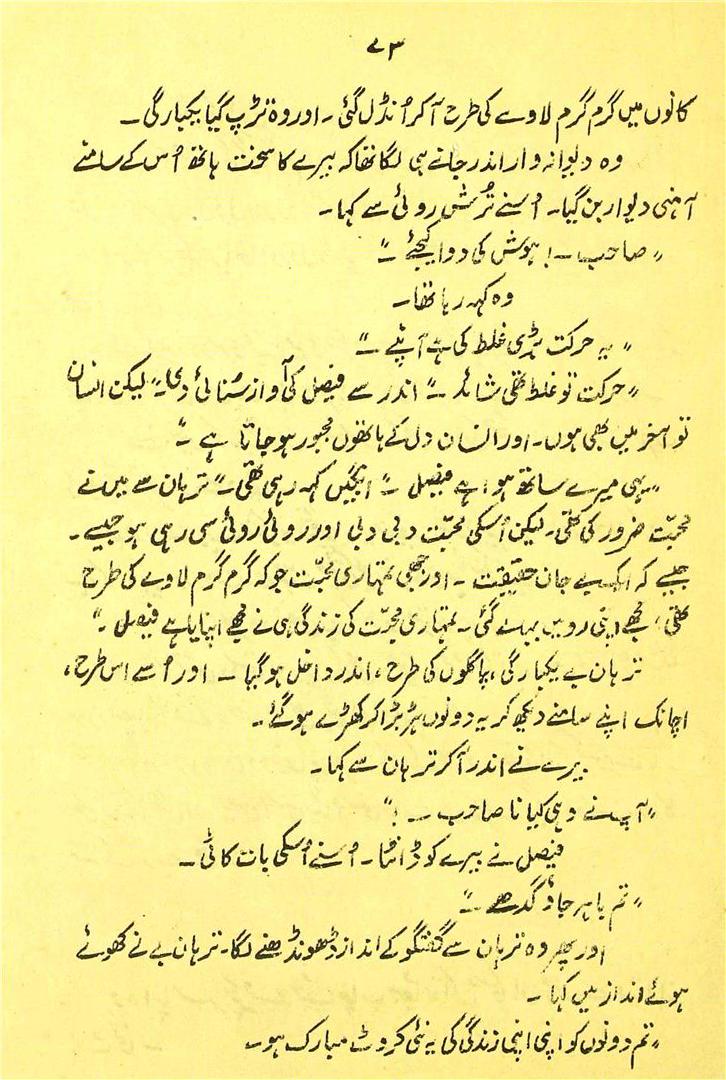 ۷۳
کانوں میں گرم گرم لاوے کی طرح آ کر اُنڈل گئی ۔ اور وہ تڑپ گیا یکبارگی ۔
وہ دیوانہ وار اندر جانے ہی لگا تھا کہ بیرے کا سخت ہاتھ اُس کے سامنے
آہنی دیوار بن گیا ۔ اُسنے تُرش روئی سے کہا ۔
”صاحب ۔! ہوش کی دوا کیجئے ۔“
وہ کہہ رہا تھا ۔
”یہ حرکت بڑی غلط کی ہے آپنے ۔“
”حرکت تو غلط تھی شائد ۔“ اندر سے فیصل کی آواز سُنائی دی ۔ ”لیکن انسان
تو آخر میں بھی ہوں ۔ اور انسان دل کے ہاتھوں مجبور ہو جاتا ہے ۔“
”یہی میرے ساتھ ہوا ہے فیصل ۔“ کہہ رہی تھی ۔ ”ترہان سے میں نے
محبّت ضرور کی تھی ۔ لیکن اُسکی محبّت دبی دبی اور روئی روئی سی رہی ہو جیسے ۔
جیسے کہ اک بے جان حقیقت ۔ اور جبھی تمہاری محبّت جو کہ گرم گرم لاوے کی طرح
تھی ، مجھے اپنی رو میں بہا لے گئی ۔ تمہاری محبّت کی زندگی ہی نے مجھے اپنایا ہے فیصل ۔“
ترہان بے یکبارگی ، پاگلوں کی طرح ، اندر داخل ہو گیا ۔ اور اُسے اس طرح ،
اچانک اپنے سامنے دیکھ کر یہ دونوں ہڑبڑا کر کھڑے ہو گئے ۔
بیرے نے اندر آ کر ترہان سے کہا ۔
”آپ نے وہی کیا نا صاحب ۔!“
فیصل نے بیرے کو ڈانٹا ۔ اُسنے اُسکی بات کاٹی ۔
”تم باہر جاؤ گدھے ۔“
اور پھر وہ ترہان سے گفتگو کے انداز ڈھونڈھنے لگا ۔ ترہان بے نے کھوئے
ہوئے انداز میں کہا ۔
”تم دونوں کو اپنی اپنی زندگی کی یہ نئی کروٹ مبارک ہو ۔